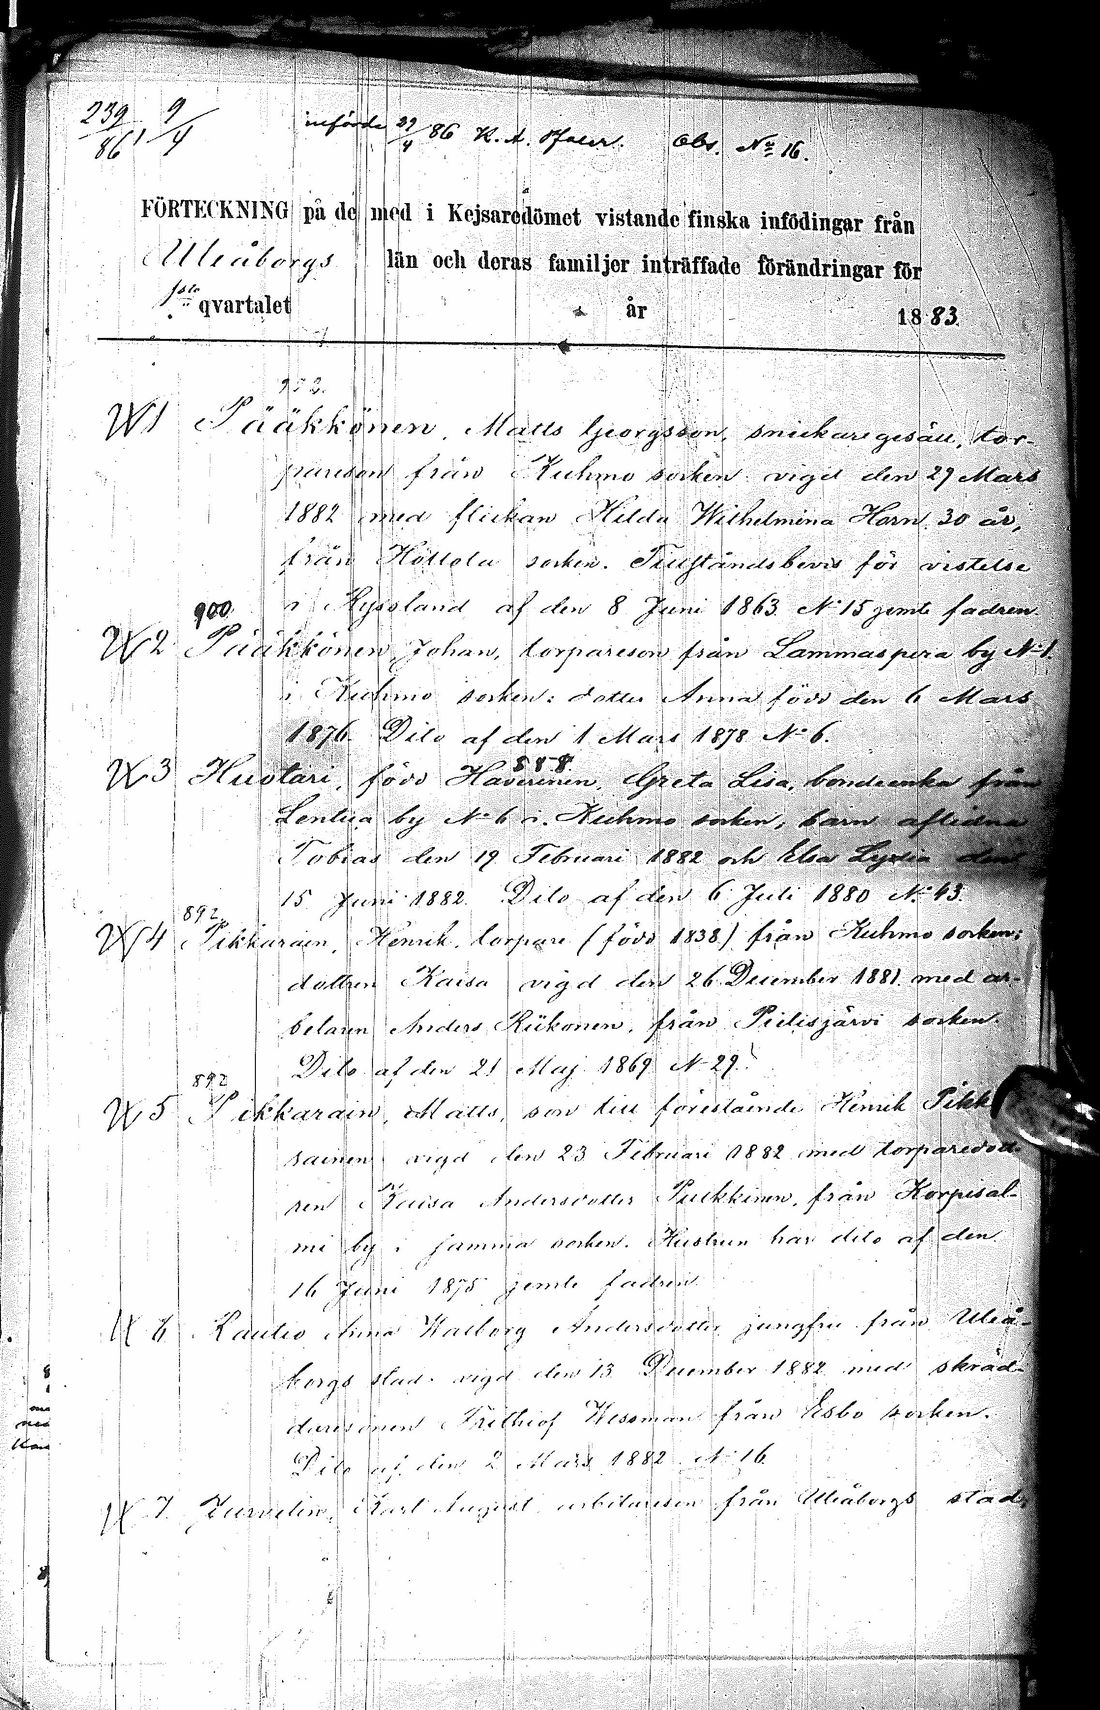 239/86 9/4 införda 29/4 86 K. A. Obs. No 16.
FÖRTECKNING på de med i Kejsaredömet vistande finska infödingar från
Uleåborgs län och deras familjer inträffade förändringar för
1sta qvartalet år 1883.
952.
1 Pääkkönen, Matts Georgsson, snickaregesäll, tor-
pareson från Kuhmo socken vigd den 29 Mars
1882 med flickan Hilda Wilhelmina Horn, 30 år,
från Hollola socken. Tillståndsbevis för vistelse
i Ryssland af den 8 Juni 1863 No 15 jemte fadren.
900
2 Pääkkönen Johan, torpareson från Lammaspera by No 1.
i Kuhmo socken: dotter Anna född den 6 Mars
1876. Dito af den 1 Mars 1878 No 6.
888
3 Huotari, född Haverinen, Greta Lisa, bondeenka från
Lentua by No 6 i Kuhmo socken; barn aflidna
Tobias den 19 Februari 1882 och Elsa Lydia den
15 Juni 1882. Dito af den 6 Juli 1880 No 43.
892
4 Pikkarain, Henrik, torpare (född 1838) från Kuhmo socken;
dottren Kaisa vigd den 26 December 1881 med ar-
betaren Anders Riikonen, från Pielisjärvi socken.
Dito af den 21 Maj 1869 No 29.
892
5 Pikkarain, Matts, son till förestående Henrik Pikk
rainen vigd den 23 Februari 1882 med torparedott-
ren Kaisa Andersdotter Pulkkinen, från Korpisal-
mi by i samma socken. Hustrun har dito af den
16 Juni 1875 jemte fadren.
6 Rautio Anna Walborg Andersdotter jungfru från Uleå-
borgs stad. vigd den 13 December 1882 med skräd-
daresonen Frithiof Wessman från Esbo socken.
Dito af den 2 Mars 1882 No 16.
7 Jurvelin, Karl August arbetareson från Uleåborgs stad,